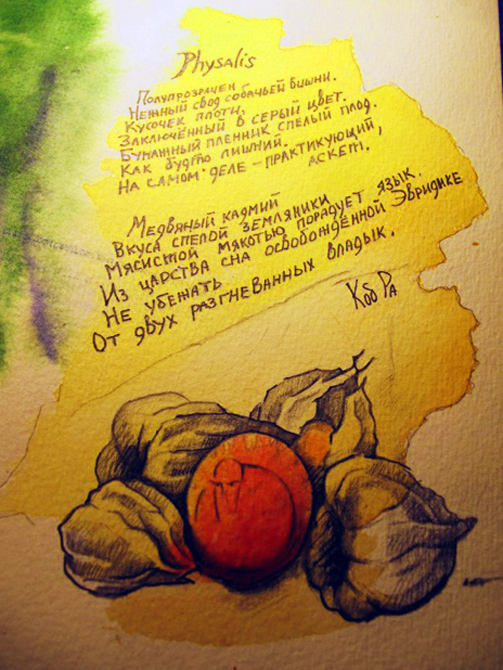 Physalis
Полупрозрачен
Нежный свод собачьей вишни.
Кусочек плоти,
Заключённый в серый цвет.
Бумажный пленник спелый плод.
Как будто лишний.
На самом деле - практикующий,
аскет.
Медвяный кадмий
Вкуса спелой земляники
Мясистой мякотью порадует язык.
Из царства сна освобождённой Эвридике
Не убежать
От двух разгневанных владык.
Коб Ра